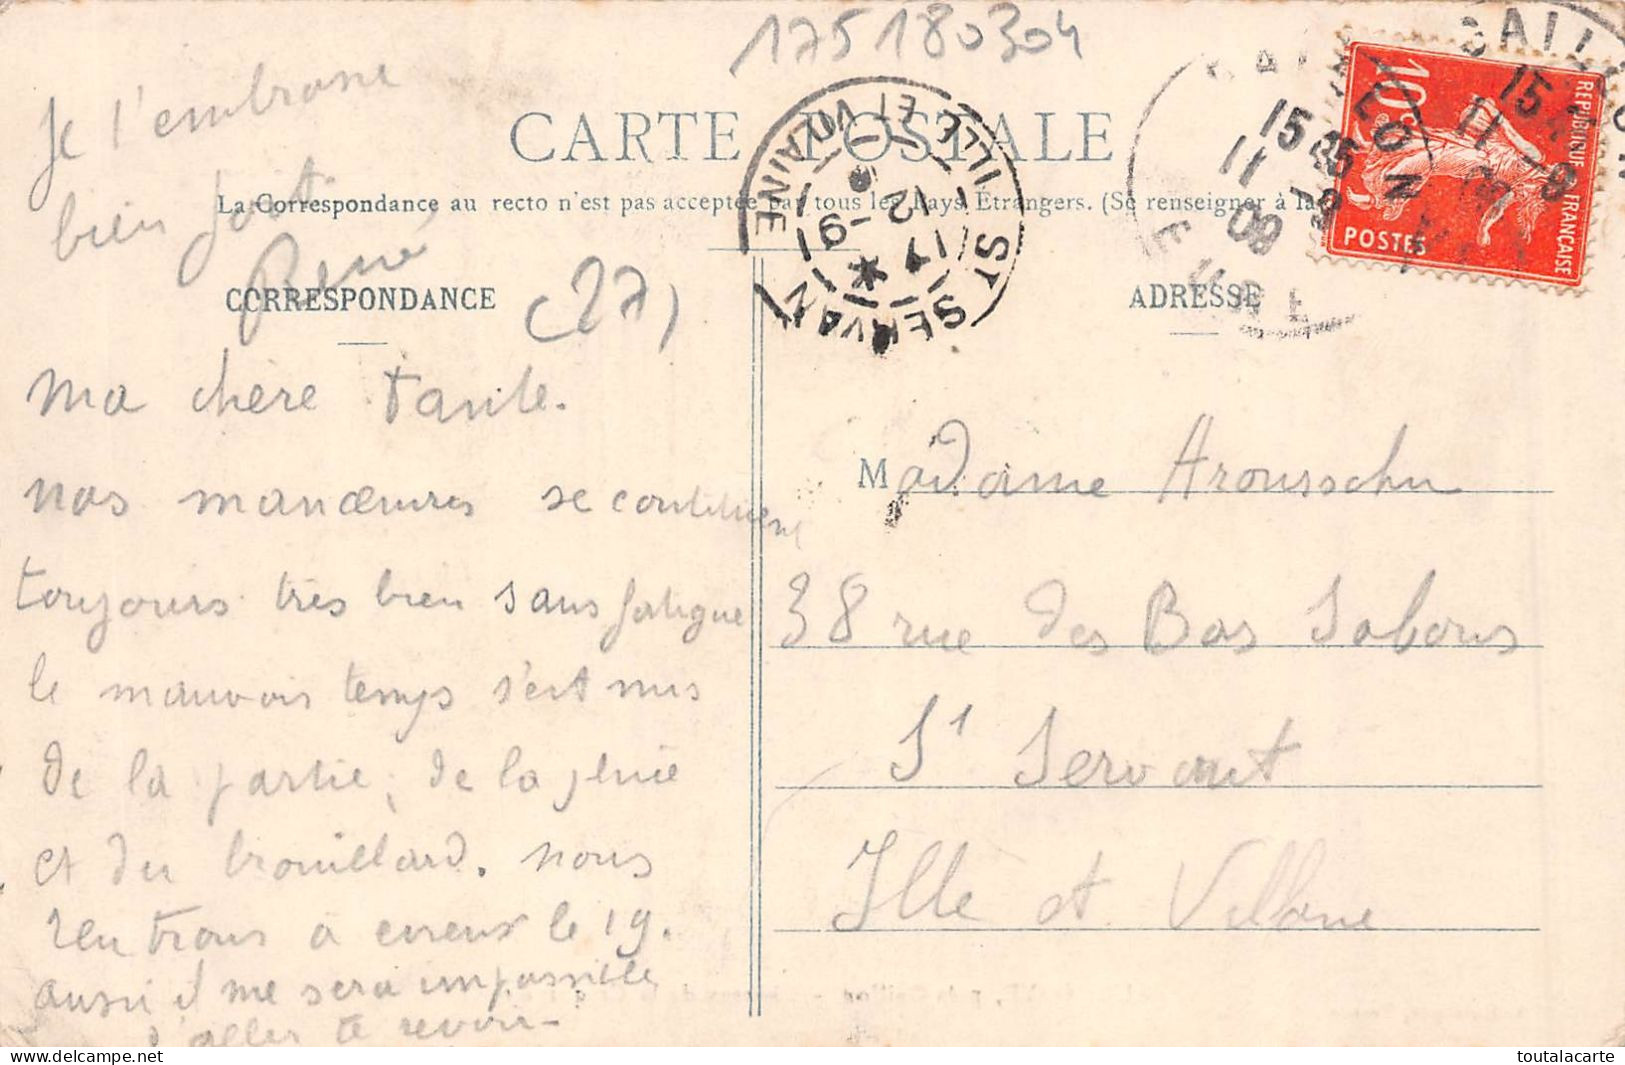 175180304
Je t'embrasse
bien fort
René
CARTE POSTALE
La Correspondance au recto n'est pas acceptée par tous les Pays Étrangers. (Se renseigner à la
CORRESPONDANCE
(27)
ADRESSE
ST SERVAN
ILLE ET VILAINE
17
12 -9
GAILLON
EURE
15 35
11 9
09
REPUBLIQUE FRANÇAISE
10c
POSTES
Ma chère Tante.
nos manœuvres se continuent
toujours très bien sans fatigue
le mauvais temps s'est mis
de la partie, de la pluie
et du brouillard. nous
rentrons a evreux le 19.
aussi il me sera impossible
d'aller te revoir-
Madame
38 rue des Bas Sabons
St Servant
Ille et Villaine
toutalacarte